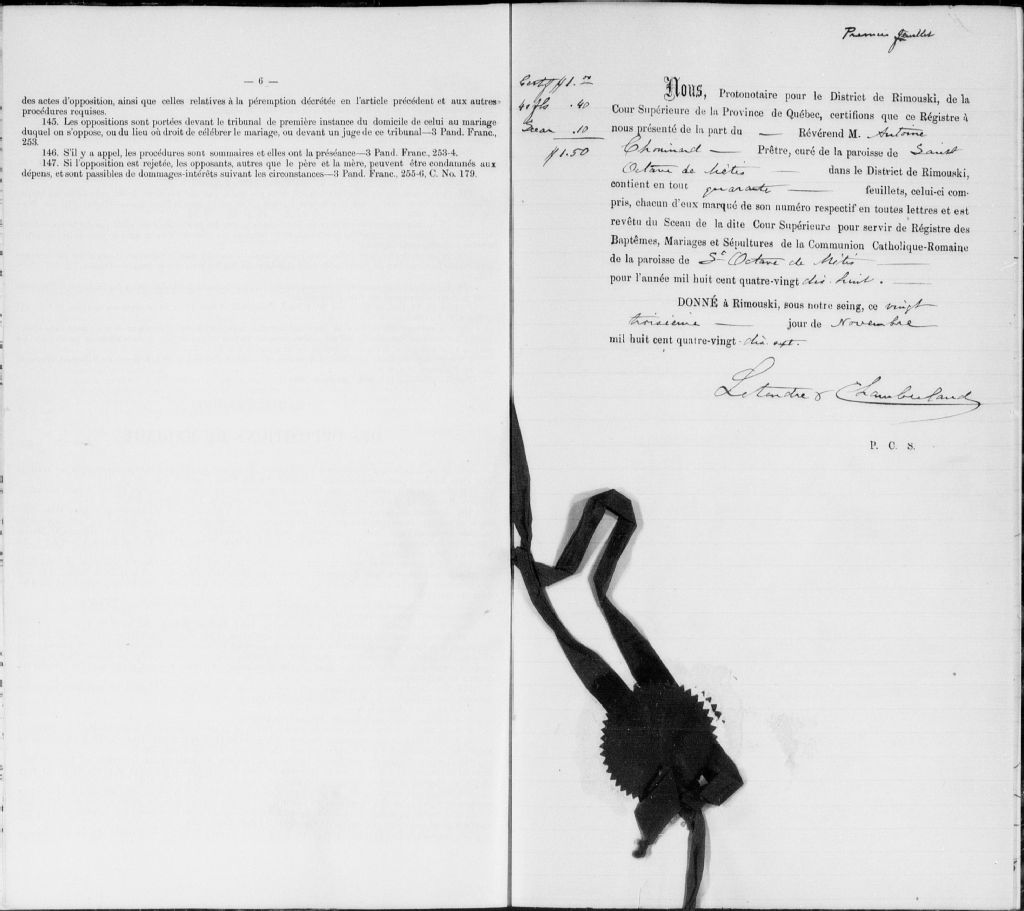 — 6 —
des actes d'opposition, ainsi que celles relatives à la péremption décrétée en l'article précédent et aux autres
procédures requises.
145. Les oppositions sont portées devant le tribunal de première instance du domicile de celui au mariage
duquel on s'oppose, ou du lieu où droit de célébrer le mariage, ou devant un juge de ce tribunal—3 Pand. Franc.,
253.
146. S'il y a appel, les procédures sont sommaires et elles ont la préséance—3 Pand. Franc., 253-4.
147. Si l'opposition est rejetée, les opposants, autres que le père et la mère, peuvent être condamnés aux
dépens, et sont passibles de dommages-intérêts suivant les circonstances—3 Pand. Franc., 255-6, C. No. 179.
Premier feuillet
Certif $1.00
40 fls .40
Sceau .10
$1.50
Nous, Protonotaire pour le District de Rimouski, de la
Cour Supérieure de la Province de Québec, certifions que ce Régistre à
nous présenté de la part du — Révérend M. Antoine
Chouinard — Prêtre, curé de la paroisse de Saint
Octave de Métis — dans le District de Rimouski,
contient en tout quarante — feuillets, celui-ci com-
pris, chacun d'eux marqué de son numéro respectif en toutes lettres et est
revêtu du Sceau de la dite Cour Supérieure pour servir de Régistre des
Baptêmes, Mariages et Sépultures de la Communion Catholique-Romaine
de la paroisse de St Octave de Métis —
pour l'année mil huit cent quatre-vingt dix huit. —
DONNÉ à Rimouski, sous notre seing, ce vingt
troisième — jour de Novembre
mil huit cent quatre-vingt-dix sept.
Letendre & Chamberland
P. C. S.